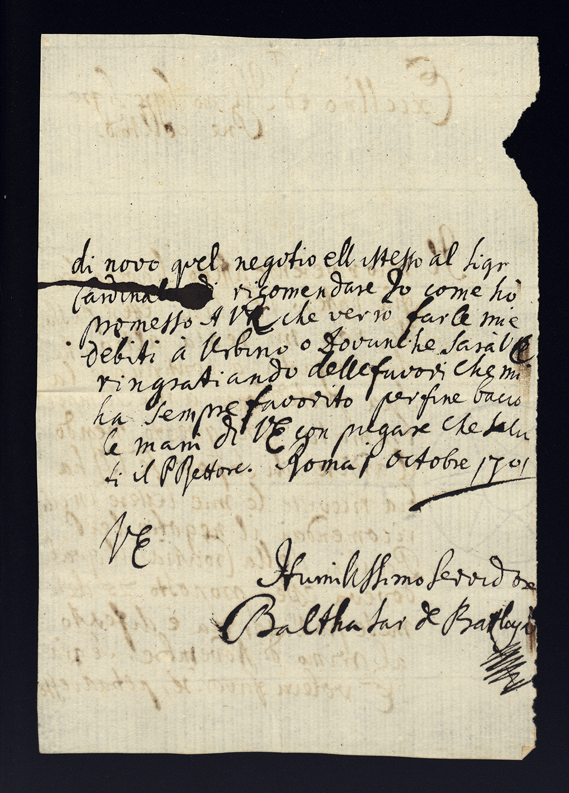 di novo quel negotio ell istesso al sigr
Cardinal di ricomendare Io come ho
promesso A VE che verrò far le mie
debiti à Urbino o dovunche sarà VE
ringratiando delle favori che mi
ha sempre favorito per fine bacio
le mani di VE con pregare che salu
ti il P Rettore. Roma p Octobre 1701
VE
Humilissimo servidore
Balthasar de